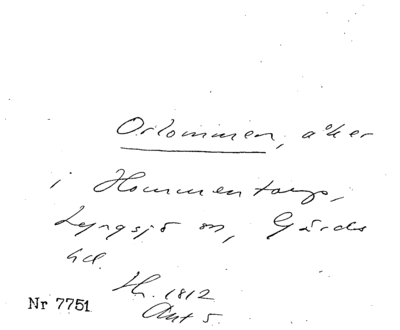 Orlommen, åker
i Hommentorps,
Lyngsjö sn, Gärds
hd.
Hr. 1812
Akt 5
Nr 7751